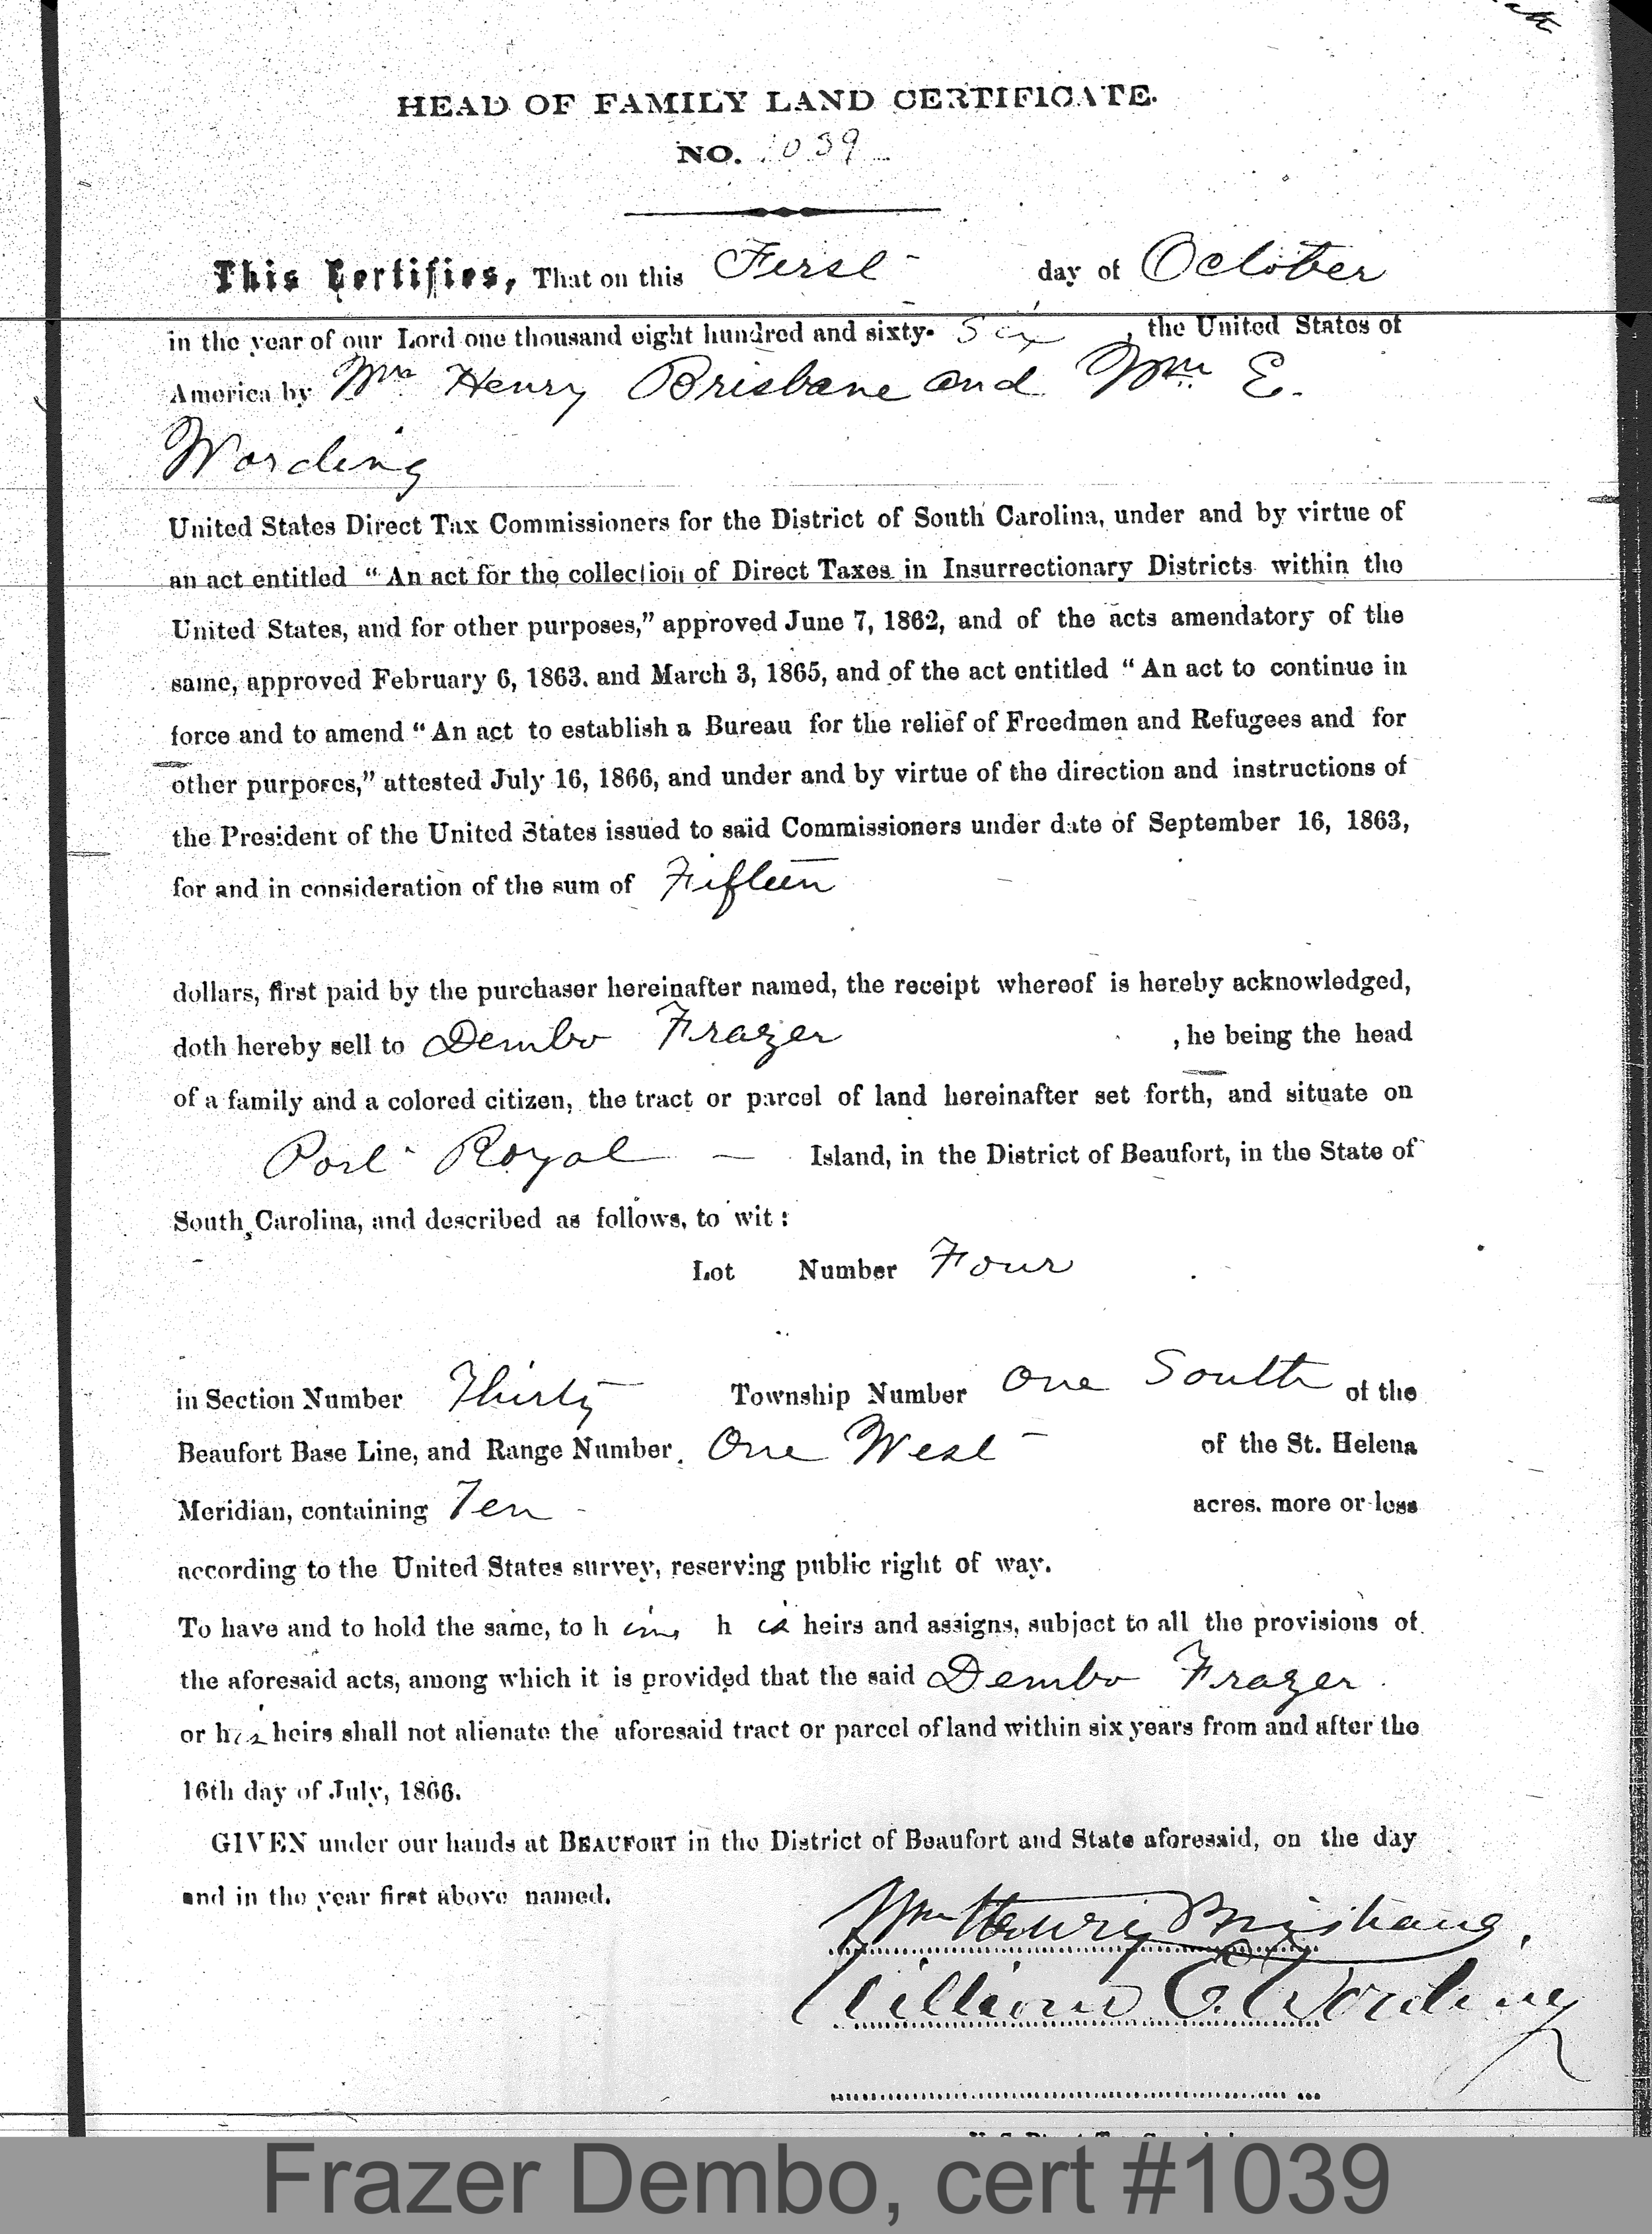 HEAD OF FAMILY LAND CERTIFICATE.
NO. 1039
This Certifies, That on this First day of October
in the year of our Lord one thousand eight hundred and sixty- six, the United States of
America by Wm Henry Brisbane and Wm E.
Wording
United States Direct Tax Commissioners for the District of South Carolina, under and by virtue of
an act entitled "An act for the collection of Direct Taxes in Insurrectionary Districts within the
United States, and for other purposes," approved June 7, 1862, and of the acts amendatory of the
same, approved February 6, 1863. and March 3, 1865, and of the act entitled "An act to continue in
force and to amend "An act to establish a Bureau for the relief of Freedmen and Refugees and for
other purposes," attested July 16, 1866, and under and by virtue of the direction and instructions of
the President of the United States issued to said Commissioners under date of September 16, 1863,
for and in consideration of the sum of Fifteen
dollars, first paid by the purchaser hereinafter named, the receipt whereof is hereby acknowledged,
doth hereby sell to Dembo Frazer , he being the head
of a family and a colored citizen, the tract or parcel of land hereinafter set forth, and situate on
Port Royal — Island, in the District of Beaufort, in the State of
South Carolina, and described as follows, to wit:
Lot Number Four
in Section Number Thirty Township Number One South of the
Beaufort Base Line, and Range Number. One West of the St. Helena
Meridian, containing Ten acres. more or less
according to the United States survey, reserving public right of way.
To have and to hold the same, to him, his heirs and assigns, subject to all the provisions of
the aforesaid acts, among which it is provided that the said Dembo Frazer
or his heirs shall not alienate the aforesaid tract or parcel of land within six years from and after the
16th day of July, 1866.
GIVEN under our hands at BEAUFORT in the District of Beaufort and State aforesaid, on the day
and in the year first above named.
Wm Henry Brisbane,
William E. Wording
Frazer Dembo, cert #1039